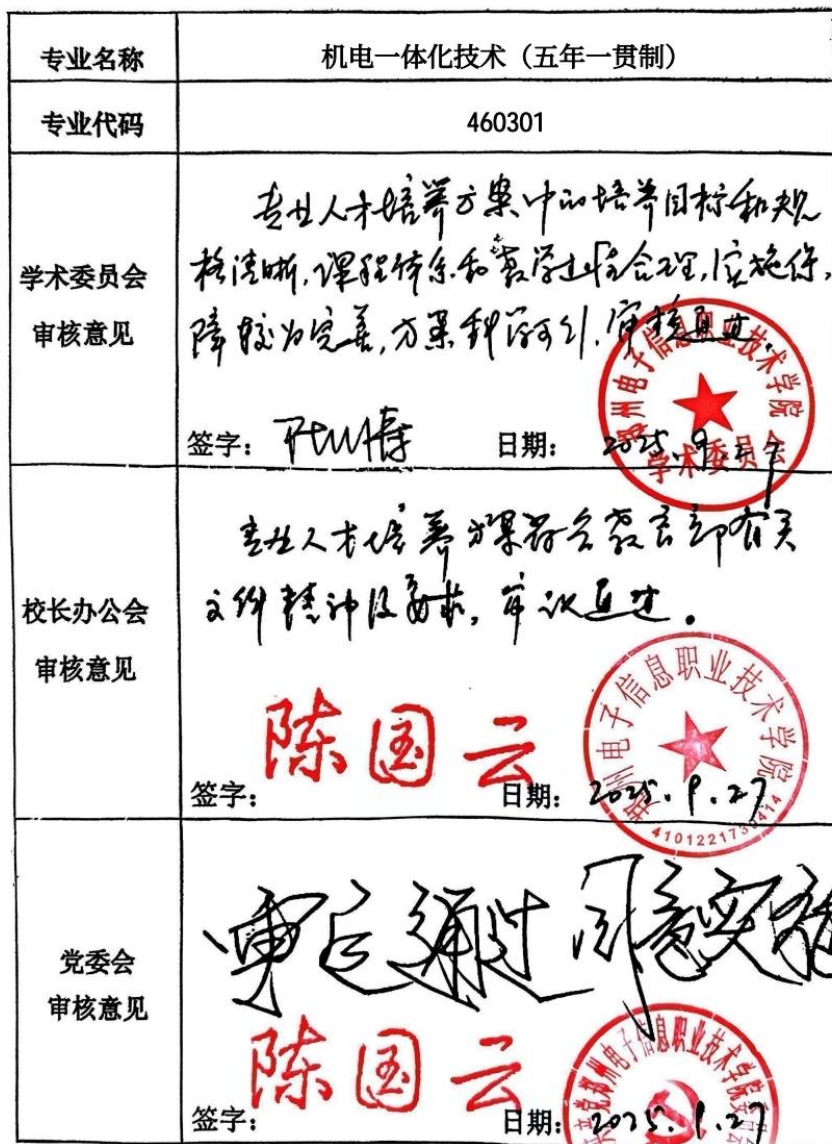 专业名称 机电一体化技术（五年一贯制）
专业代码 460301
学术委员会
审核意见
专业人才培养方案中的培养目标和规
格清晰，课程体系和教学进程合理，实施保
障较为完善，方案科学可行，审核通过。
签字： 日期： 2025.9.27
郑州电子信息职业技术学院
学术委员会
校长办公会
审核意见
专业人才培养方案符合教育部有关
文件精神及要求，审议通过。
签字： 陈国云 日期： 2025.9.27
郑州电子信息职业技术学院
党委会
审核意见
审定通过 同意实施
签字： 陈国云 日期： 2025.9.27